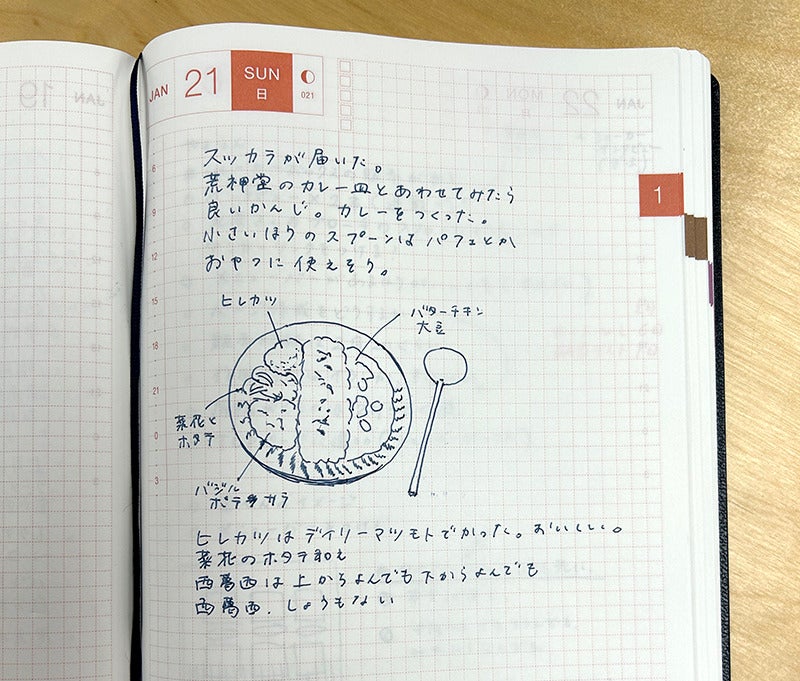 JAN 21 SUN
日
021
1
スッカラが届いた。
荒神堂のカレー皿とあわせてみたら
良いかんじ。カレーをつくった。
小さいほうのスプーンは パフェとか
おやつに使えそう。
ヒレカツ
バターチキン
大豆
菜花と
ホタテ
バジル
ポテサラ
ヒレカツはデイリーマツモトでかった。おいしい。
菜花のホタテ和え
西葛西は上からよんでも下からよんでも
西葛西.しょうもない
6
9
12
15
18
21
0
3